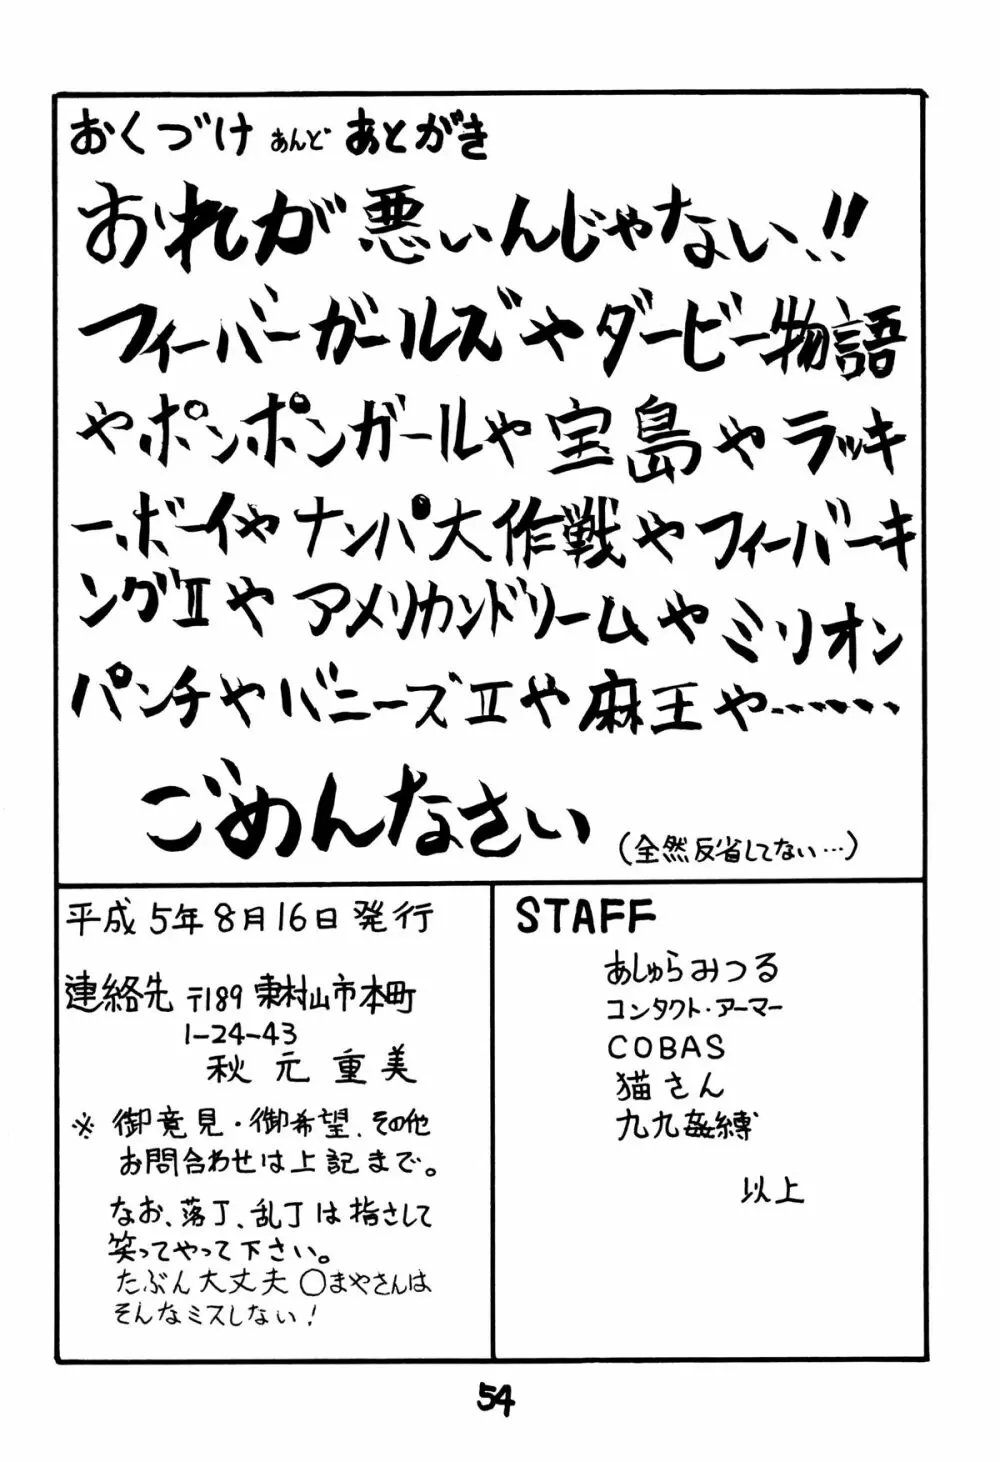 おくづけ あんど あとがき
おれが悪いんじゃない!!
フィーバーガールズやダービー物語
やポンポンガールや宝島やラッキ
ーボーイやナンパ大作戦やフィーバーキ
ングⅡやアメリカンドリームやミリオン
パンチやバニーズⅡや麻王や……
ごめんなさい (全然反省してない…)
平成5年8月16日発行
連絡先 〒189 東村山市本町
1-24-43
秋元重美
※ 御意見・御希望、その他
お問合わせは上記まで。
なお、落丁、乱丁は指さして
笑ってやって下さい。
たぶん大丈夫 〇まやさんは
そんなミスしない!
STAFF
あしゅらみつる
コンタクト・アーマー
COBAS
猫さん
九九姦縛
以上
54